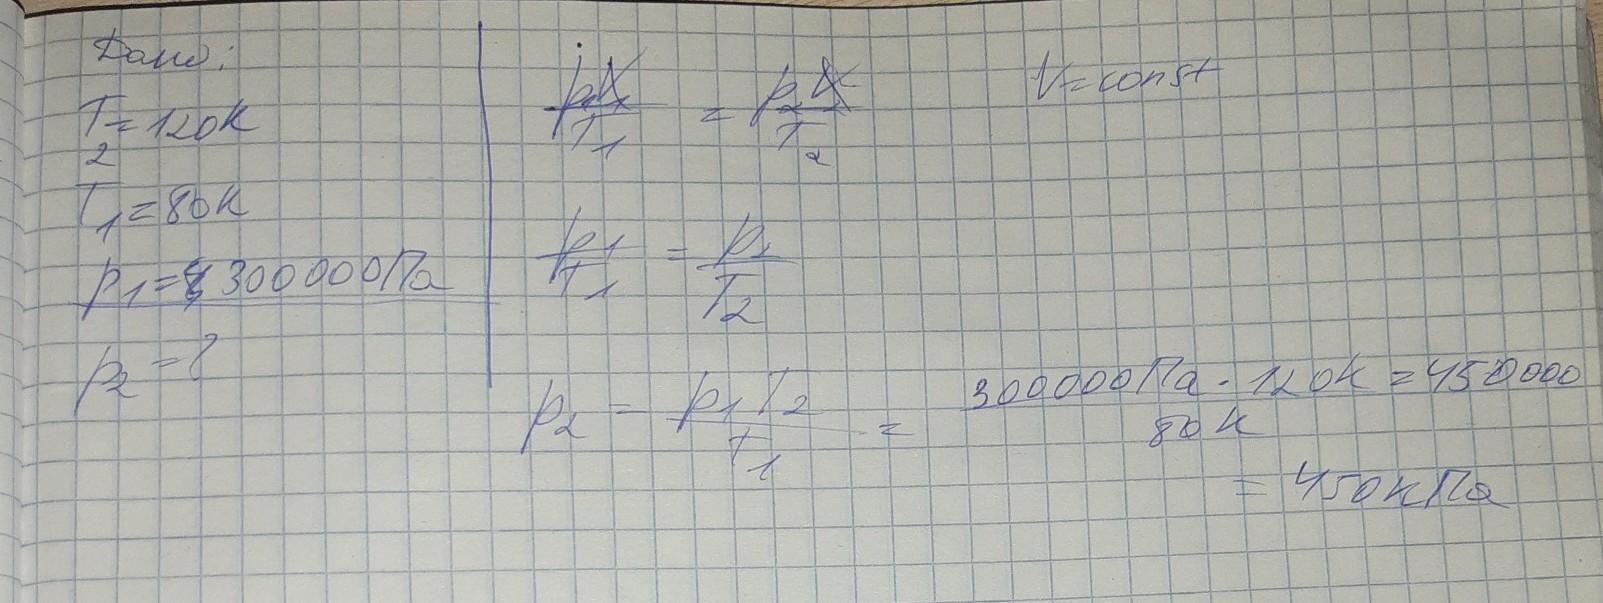 Дано:
T₂ = 120K
T₁ = 80K
p₁ = 300000Па
p₂ = ?
p₁V/T₁ = p₂V/T₂
V = const
p₁/T₁ = p₂/T₂
p₂ = p₁T₂/T₁ = 300000Па · 120K/80K = 450000
= 450кПа